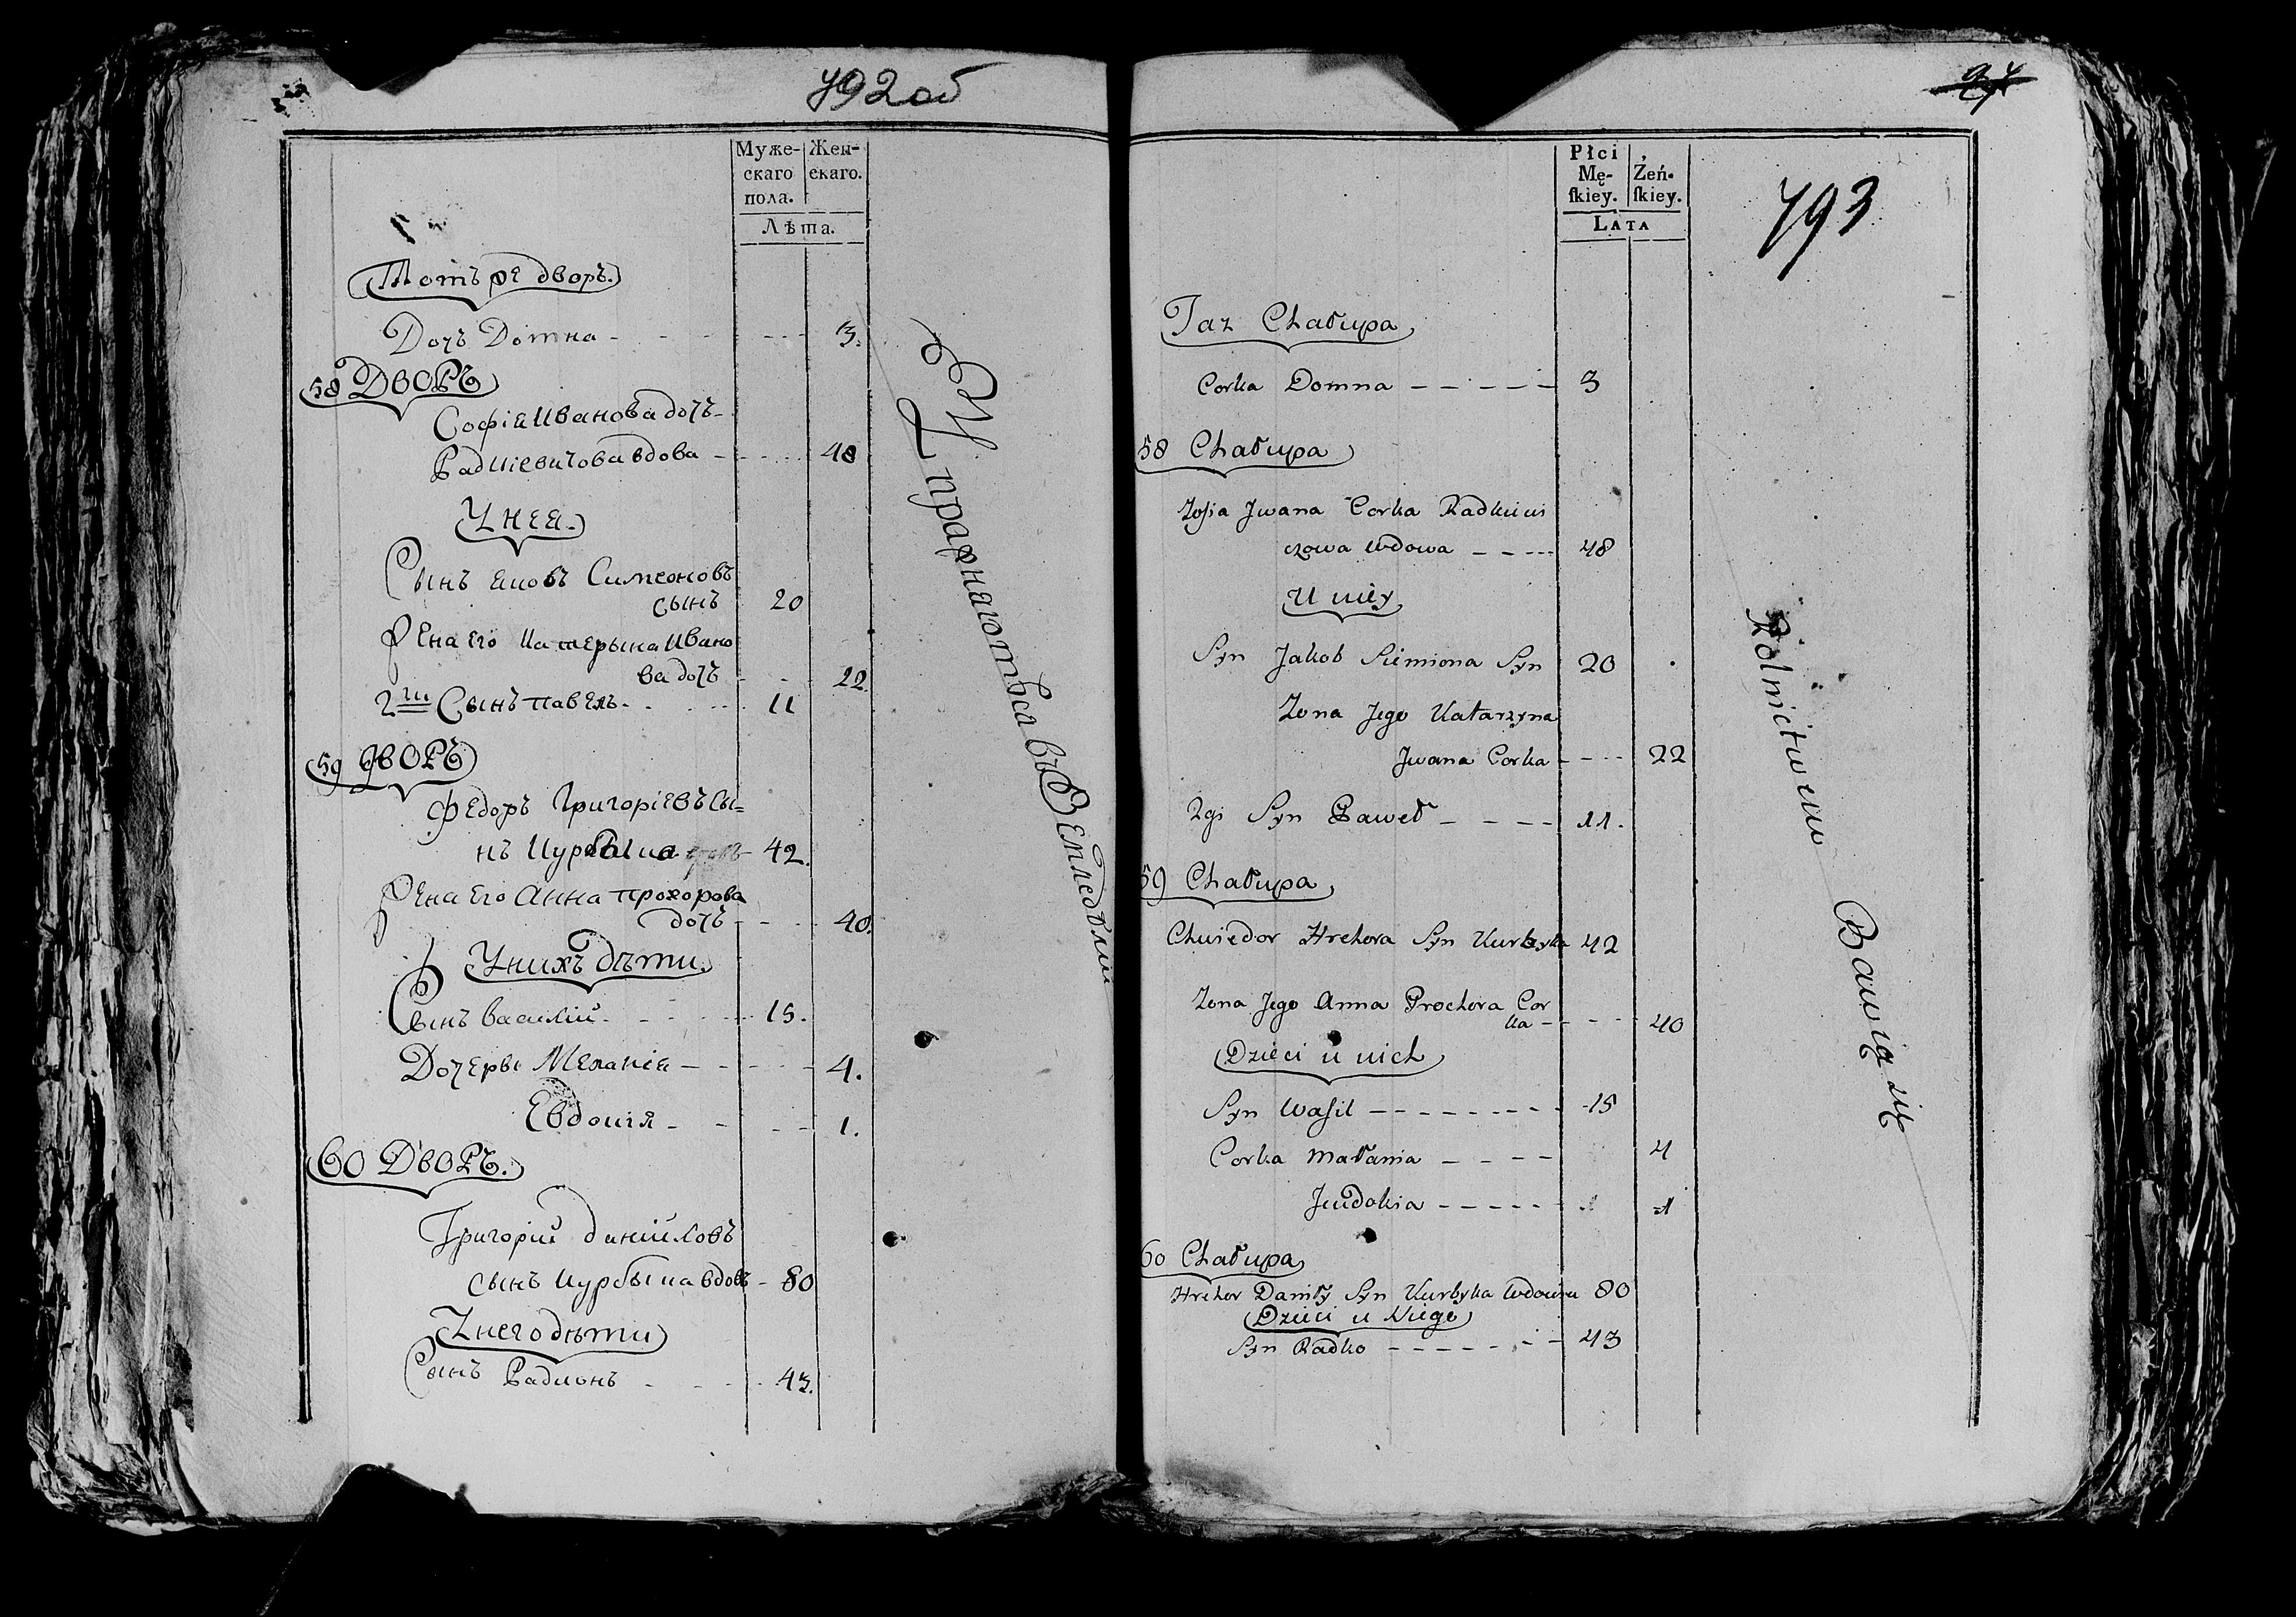 792об
Муже- Жен-
скаго скаго.
пола.
Лѣта.
Тотъ же дворъ.
Дочъ Домна - - - - 3.
58 ДВОРЪ
Софія Иванова дочъ
Радкіевичова вдова - - - 48
У нея.
Сынъ Яковъ Симеоновъ
сынъ 20
Жена Его Катерына Ивано
ва дочъ - - 22
2ги Сынъ павелъ - - - 11
59 ДВОРЪ
Федоръ Григоріевъ Сы=
нъ Курбыка 42.
Жена Его Анна прохорова
дочъ - - 40.
У нихъ дѣти.
Сынъ василій - - - - 15.
Дочеры Меланія - - - - 4.
Евдокія - - - - 1.
60 ДВОРЪ.
Григорій данійловъ
сынъ Курбыка вдовъ - 80
У него дѣти
Сынъ Радионъ - - - 43.
Упражняютъся въ Земледѣліи
793
Płci Żeń-
Mę- ſkiey.
ſkiey.
LATA
Taż Chałupa
Corka Domna - - - - - 3
58 Chałupa
Zofia Jwana Corka Radkiewi
czowa wdowa - - - - 48
U niey
Syn Jakob Siemiona Syn 20
Zona Jego Katarzyna
Jwana Corka - - - 22
2gi Syn Paweł - - - - 11.
59 Chałupa
Chwiedor Hrehora Syn Kurbyka 42
Zona Jego Anna Prochora Cor
ka - - - - 40
Dzieci u nich
Syn Waſil - - - - - - - - 15
Corka Małania - - - - 4
Jewdokia - - - - - 1
60 Chałupa
Hrehor Daniły Syn Kurbyka wdowiec 80
Dzieci u Niego
Syn Radko - - - - - - - 43
Rolnictwem Bawią się